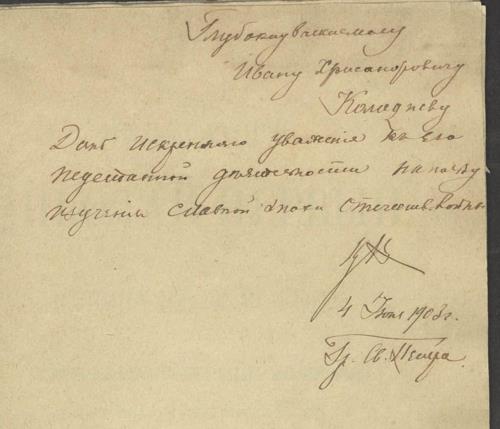 Глубокоуважаемому
Ивану Хрисанфовичу
Колодѣеву
Дань искренняго уваженія къ его
неустанной дѣятельности на пользу
изученія славной эпохи Отечеств. войны
4 Іюня 1908 г.
Гр. Св. Петра